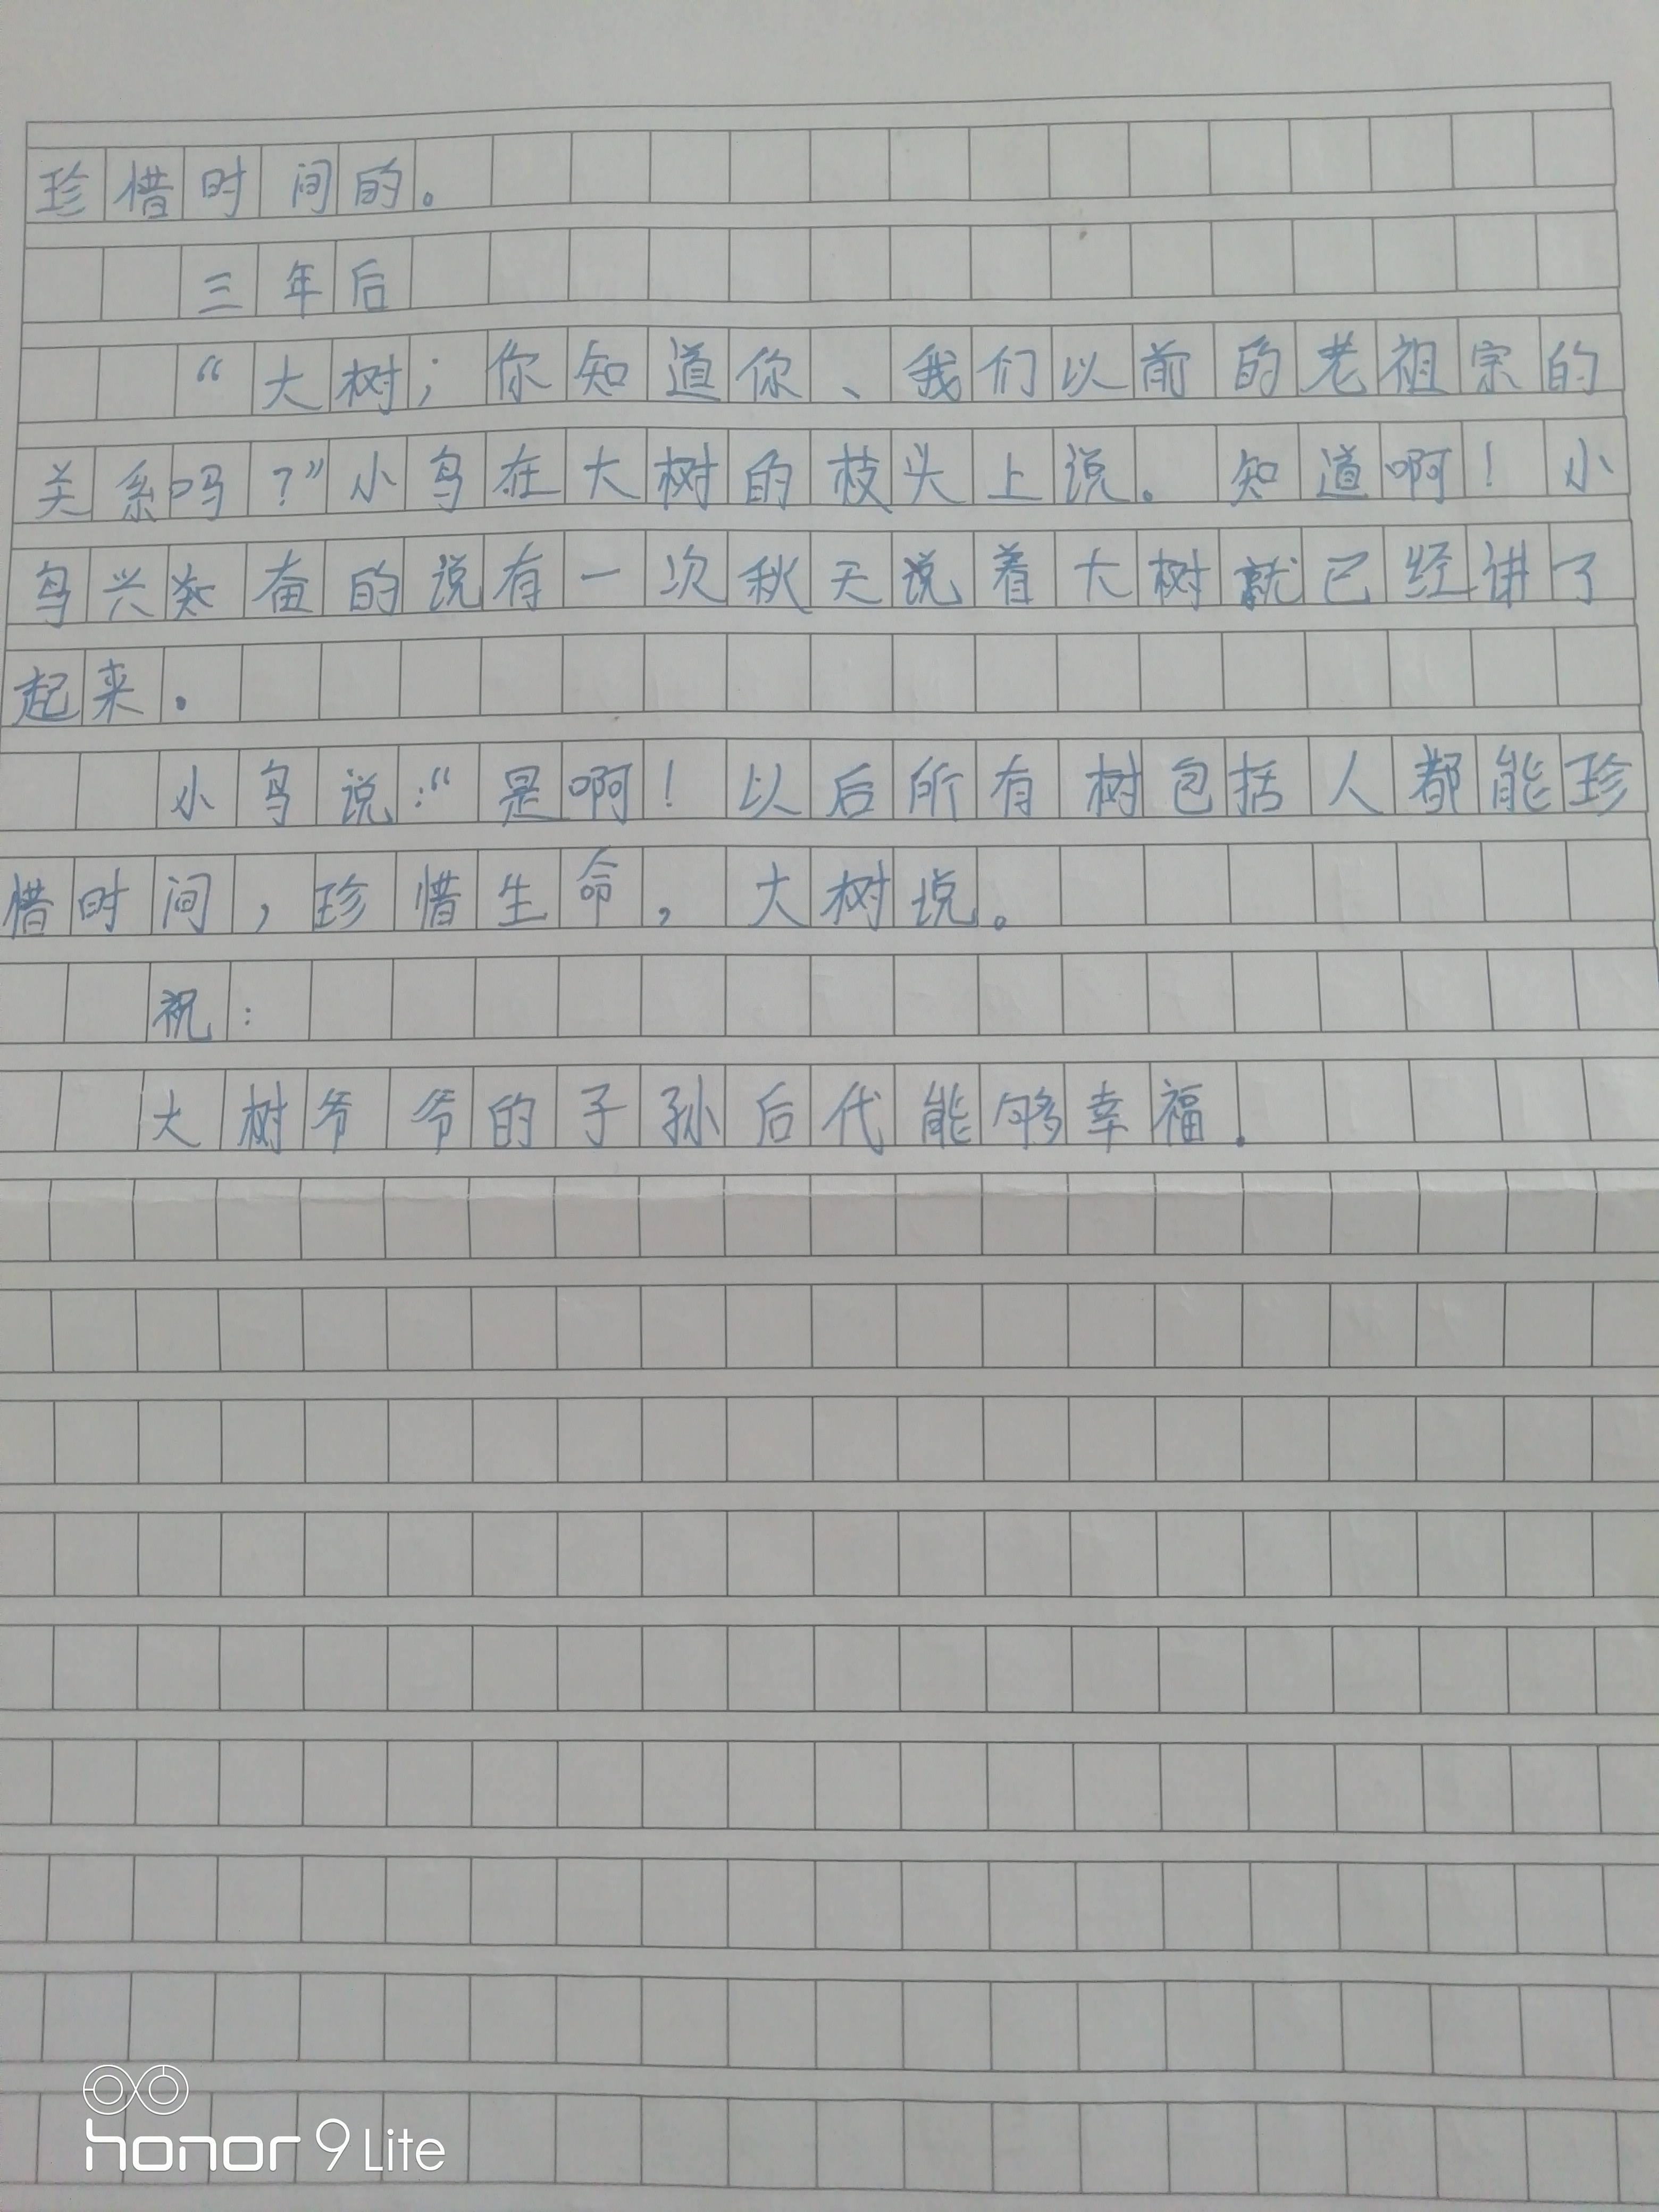 珍惜时间的。
三年后
“大树；你知道你、我们以前的老祖宗的
关系吗？”小鸟在大树的枝头上说。知道啊！小
鸟兴奋的说有一次秋天说着大树就已经讲了
起来.
小鸟说:“是啊！以后所有树包括人都能珍
惜时间，珍惜生命，大树说。
祝：
大树爷爷的子孙后代能够幸福.
honor 9 Lite